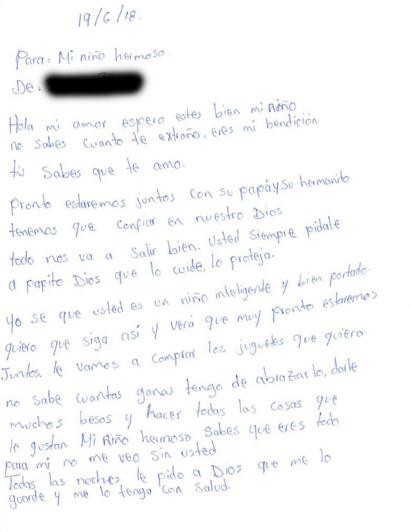 19/6/18.
Para: Mi niño hermoso.
De:
Hola mi amor espero estes bien mi niño
no sabes cuanto te extraño, eres mi bendición
tú sabes que te amo.
Pronto estaremos juntos con su papá y su hermanito
tenemos que confiar en nuestro Dios
todo nos va a salir bien. Usted siempre pidale
a papito Dios que lo cuide, lo proteja.
Yo se que usted es un niño inteligente y bien portado.
quiero que siga así y verá que muy pronto estaremos
Juntos, le vamos a comprar los juguetes que quiera.
no sabe cuantas ganas tengo de abrazarlo, darle
muchos besos y hacer todas las cosas que
le gustan. Mi niño hermoso sabes que eres todo
para mi no me veo sin usted.
Todas las noches le pido a Dios que me lo
guarde y me lo tenga con salud.